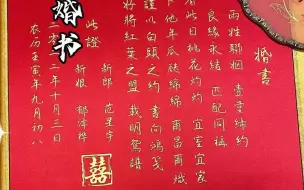 婚書
兩姓聯姻 壹堂締約
良緣永結 匹配同稱
看此日桃花灼灼 宜室宜家
卜他年瓜瓞綿綿 爾昌爾熾
謹以白頭之約 書向鴻箋
好將紅葉之盟 載明鴛譜
此證
新郎 范星宇
新娘 郁
二零二二年十月三日
农历壬寅年九月初八
婚书
囍